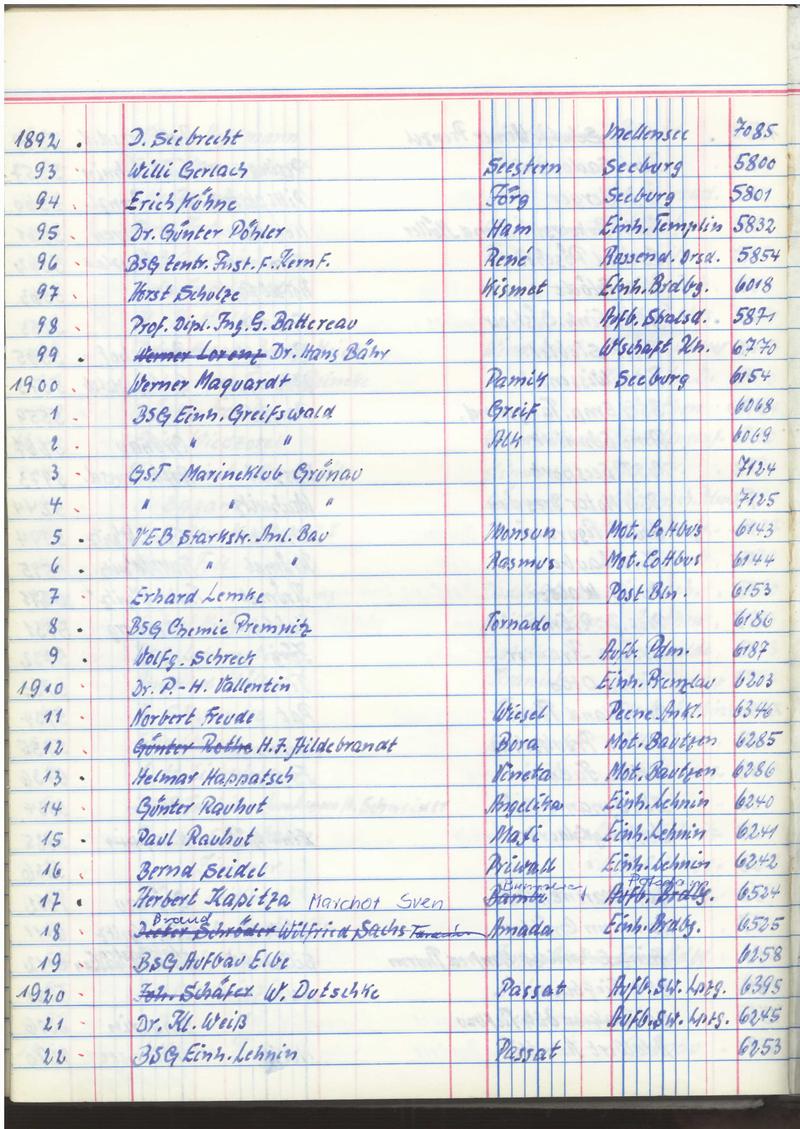 1892 . D. Siebrecht Mellensee 7085
93 Willi Gerlach Seestern Seeburg 5800
94 Erich Kühne Jörg Seeburg 5801
95 Dr. Günter Pöhler Ham Einh. Templin 5832
96 BSG Zentr. Inst. F. Kernf. René Rossend. Drsd. 5854
97 Horst Schulze Kismet Einh. Brdbg. 6018
98 Prof. Dipl. Ing. G. Battereau Aufb. Stralsd. 5871
99 . Werner Lorenz Dr. Hans Bähr W'schaft 6770
1900 Werner Maquardt Pamir Seeburg 6154
1 BSG Einh. Greifswald Greif 6068
2 " " Alk 6069
3 GST Marineklub Grünau 7124
4 " " " 7125
5 . VEB Starkstr. Anl. Bau Monsun Mot. Cottbus 6143
6 . " " Rasmus Mot. Cottbus 6144
7 Erhard Lemke Post Bln. 6153
8 . BSG Chemie Premnitz Tornado 6186
9 . Wolfg. Schreck Aufb. Pdm. 6187
1910 Dr. P.-H. Vallentin Einh. Prenzlau 6203
11 Norbert Freude Wiesel Peene Ankl. 6346
12 Günter Rothe H.J. Hildebrandt Bora Mot. Bautzen 6285
13 . Helmar Happatsch Vineta Mot. Bautzen 6286
14 Günter Rauhut Angelika Einh. Lehnin 6240
15 . Paul Rauhut Einh. Lehnin 6241
16 Bernd Seidel Priwall Einh. Lehnin 6242
17 . Herbert Kapitza Marchot Sven Bambi Aufb. Brdbg. 6524
Brand
18 Dieter Schröder Wilfried Sachs Amada Einh. Brdbg. 6525
19 BSG Aufbau Elbe 6258
1920 Joh. Schäfer W. Dutschke Passat Aufb. Sw. Lpzg. 6395
21 Dr. Kl. Weiß Aufb. Sw. Lpzg. 6245
22 BSG Einh. Lehnin Passat 6253